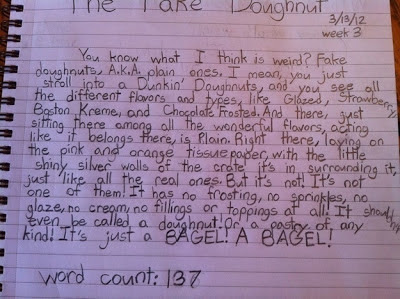 The Fake Doughnut
3/13/12
week 3
You know what I think is weird? Fake
doughnuts, A.K.A. plain ones. I mean, you just
stroll into a Dunkin' Doughnuts, and you see all
the different flavors and types, like Glazed, Strawberry,
Boston Kreme, and Chocolate Frosted. And there, just
sitting there among all the wonderful flavors, acting
like it belongs there, is Plain. Right there, laying on
the pink and orange tissue paper, with the little
shiny silver walls of the crate it's in surrounding it,
just like all the real ones. But it's not! It's not
one of them! It has no frosting, no sprinkles, no
glaze, no cream, no fillings or toppings at all! It shouldn't
even be called a doughnut! Or a pastry of, any
kind! It's just a BAGEL! A BAGEL!
word count: 137